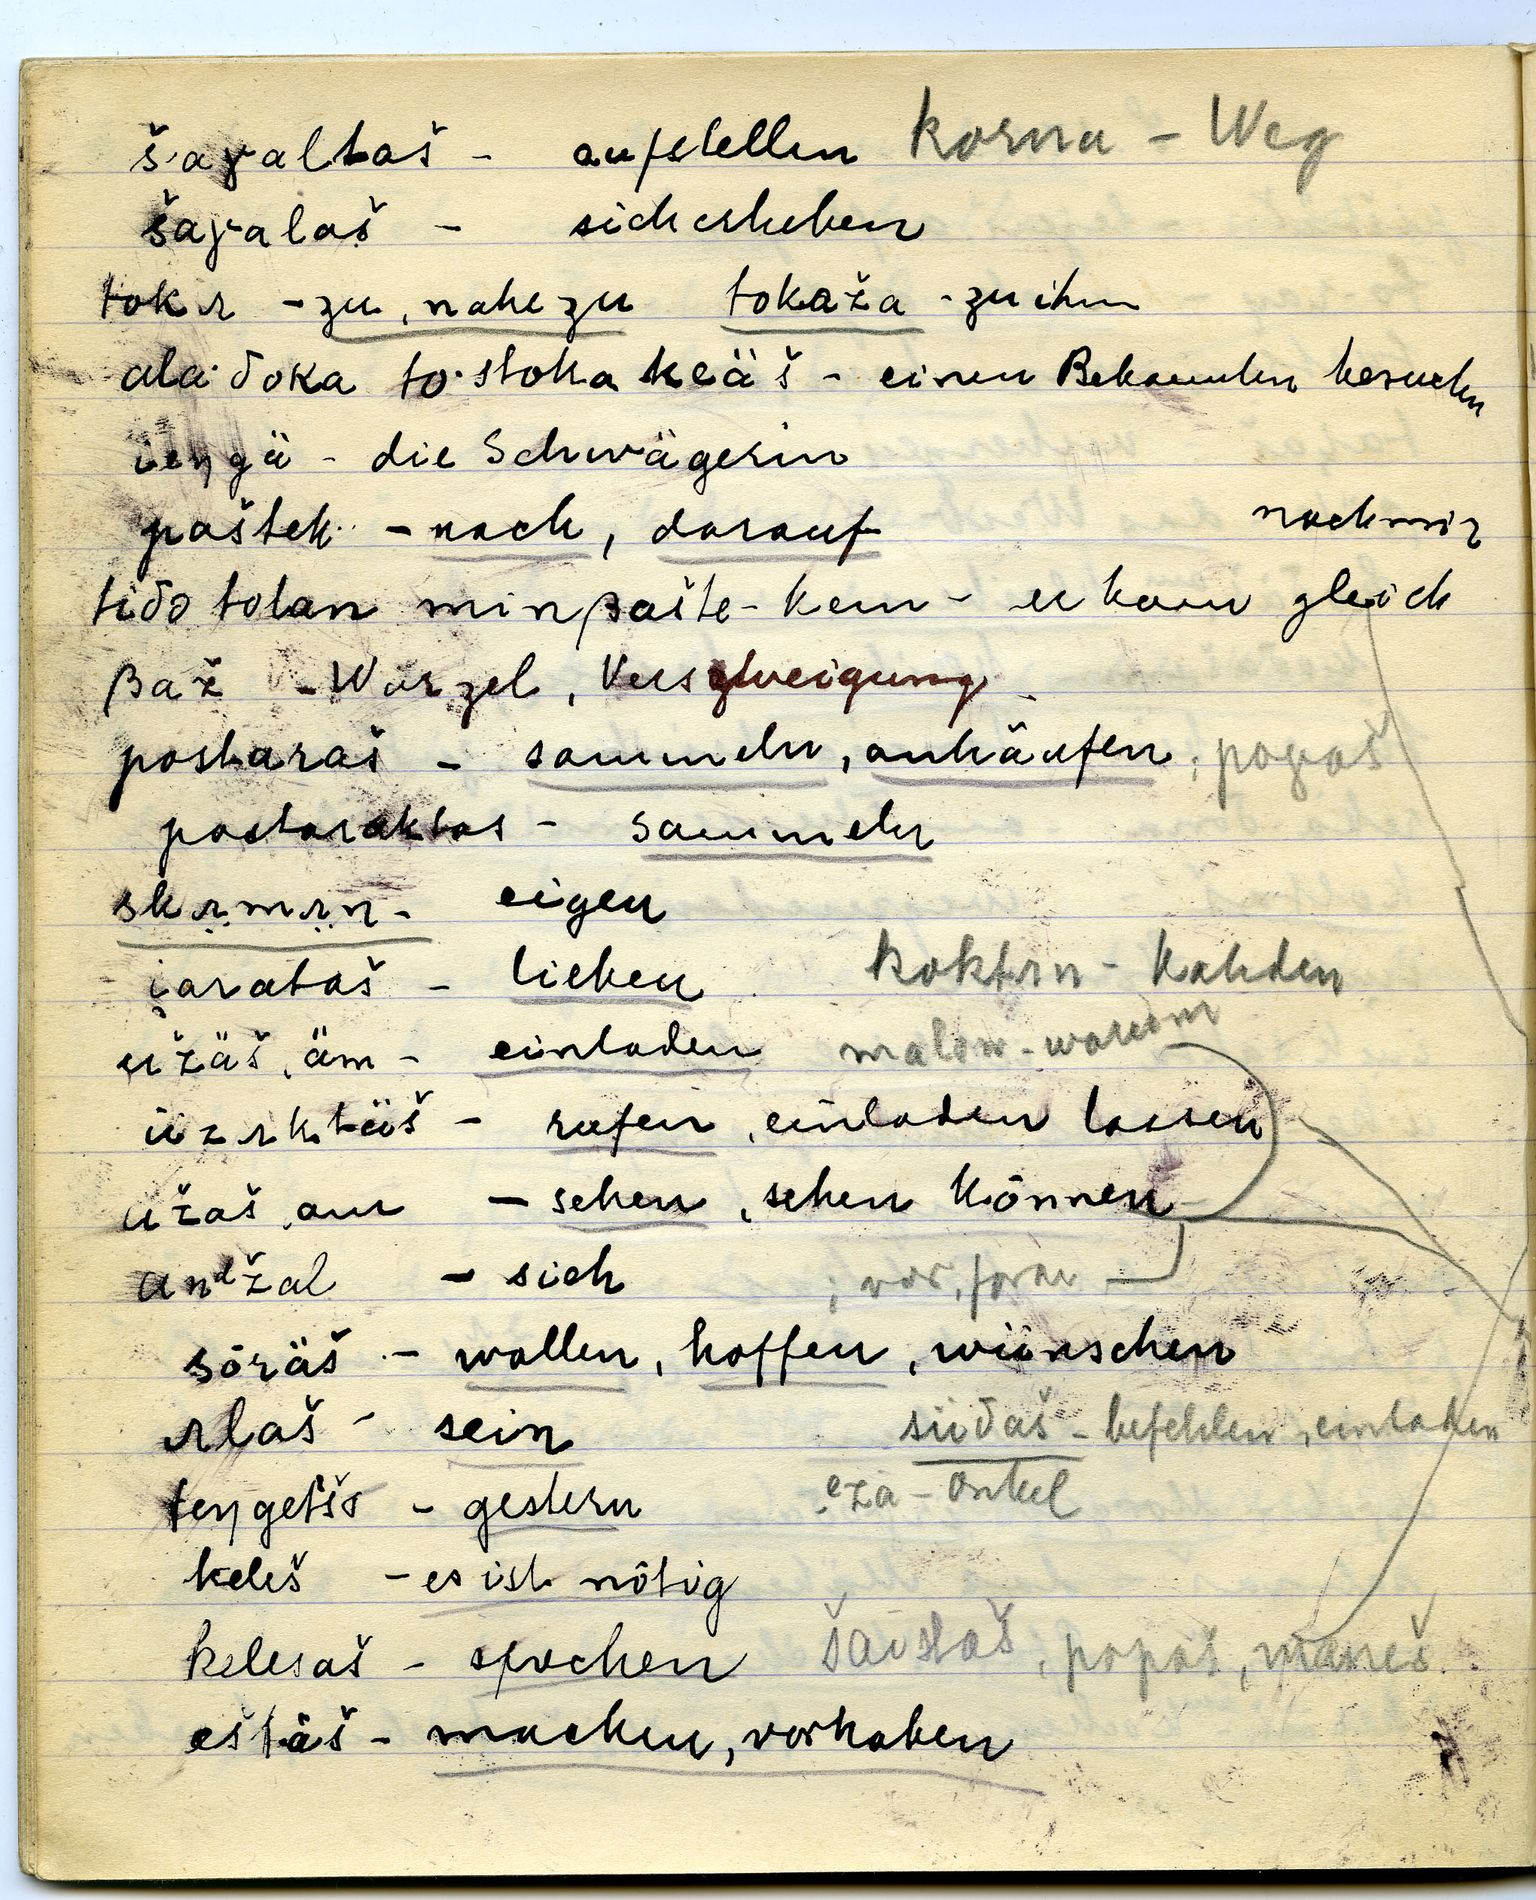 šaɣaltaš - aufstellen korna - Weg
šaɣalaš - sich erheben
tokɪ - zu, nahe zu tokaža - zu ihm
ala·ðoka to·štoka keäš - einen Bekannten besuchen
ieŋgä - die Schwägerin
paštek - nach, darauf nach mir
tiðə tolən min pašte- kem - er kam gleich
βaž - Wurzel, Verszweigung
postaraš - sammeln, anhäufen, poɣaš
postaraktas - sammeln
skɪmɪn - eigen
i̯arataš - lieben koktɪn - zu
üžäš, äm - einladen malan - warum
üžɪktäš - rufen, einladen lassen
užaš, am - sehen, sehen können
anᵈžal - sich ; vor, forne
söräš - wollen, hoffen, wünschen
ɪlaš - sein šüðaš - befehlen, einladen
teŋgetšə - gestern eza - Onkel
keleš - es ist nötig
kelesaš - sprechen šaistaš, popaš, maneš
eštäš - machen, vorhaben